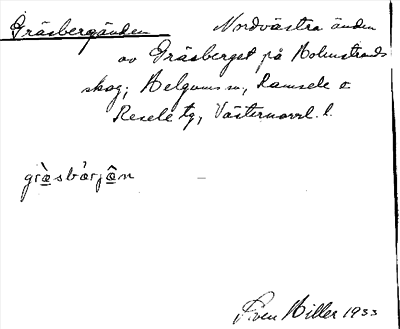 Gräsbergänden Nordvästra änden
av Gräsberget på Holmstrands
skog; Helgums sn, Ramsele o
Resele tg, Västernorrl. l.
græ̀sbárjæ̂n
Sven Hiller 1933